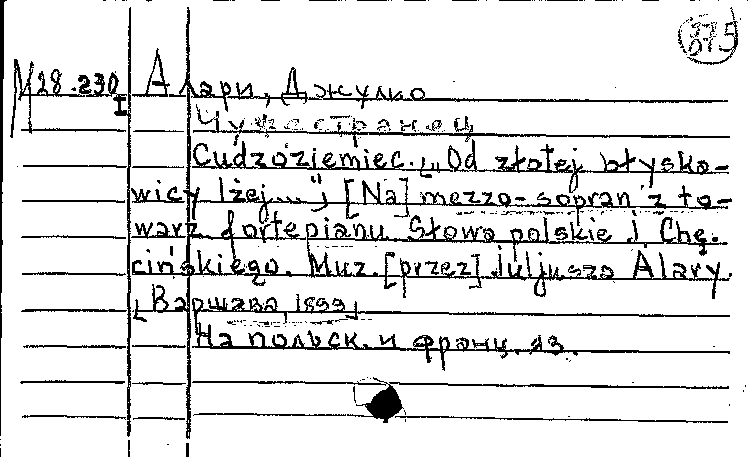 M 28.230 Алари, Джулио
I
Чужестранец
Cudzoziemiec. „Od złotej błyska-
wicy lżej..." [Na] mezzo-sopran z to-
warz fortepianu Słowa polskie J. Chę-
cińskiego. Muz. [przez] Juljusza Alary.
[Варшава, 1899]
На польск. и франц. яз.